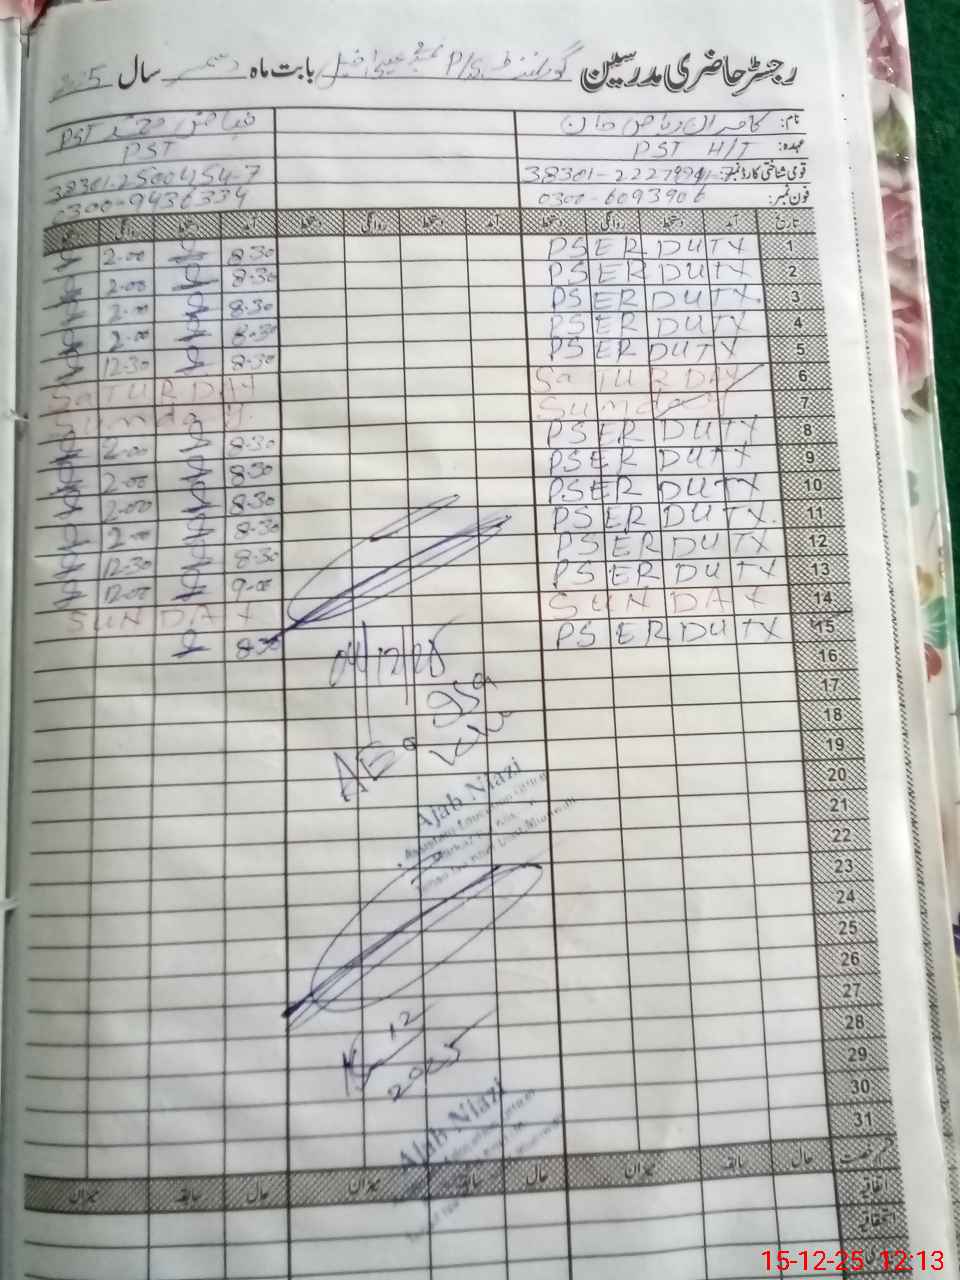 رجسٹر حاضری مدرسین گورنمنٹ P/S بابت ماہ دسمبر سال
نام: کامران ریاض خان
PST
عہدہ: PST H/T
PST
قومی شناختی کارڈ نمبر:
38301-2500454-7
فون نمبر: 0300-6093906
0300-9436334
تاریخ آمد دستخط روانگی دستخط آمد دستخط روانگی دستخط آمد دستخط روانگی دستخط
1 PSER DUTY 8.30 2.00
2 PSER DUTY 8.30 2.00
3 PSER DUTY 8.30 2.00
4 PSER DUTY 8.30 2.00
5 PSER DUTY 8.30 12.30
6 SaTURDAY SaTURDAY
7 Sunday Sunday
8 PSER DUTY 8.30 2.00
9 PSER DUTY 8.30 2.00
10 PSER DUTY 8.30 2.00
11 PSER DUTY 8.30 2.00
12 PSER DUTY 8.30 12.30
13 PSER DUTY 9.00 12.00
14 SUNDAY SUNDAY
15 PSER DUTY 8.30
16
04/12/25
17
18
19
AEO
20
Ajab Niazi
21
Assistant Education Officer
22
23
24
25
26
27
28
12
29
2025
30
31
Ajab Niazi
قسم رخصت حال سابقہ میزان حال سابقہ میزان حال سابقہ میزان
اتفاقیہ
استحقاقیہ
15-12-25 12:13